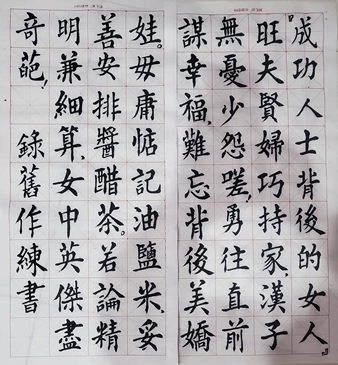 『成功人士背後的女人』
旺夫賢婦巧持家,漢子
無憂少怨嗟,勇往直前
謀幸福,難忘背後美嬌
娃。毋庸惦記油鹽米,妥
善安排醬醋茶。若論精
明兼細算,女中英傑盡
奇葩! 錄舊作練書